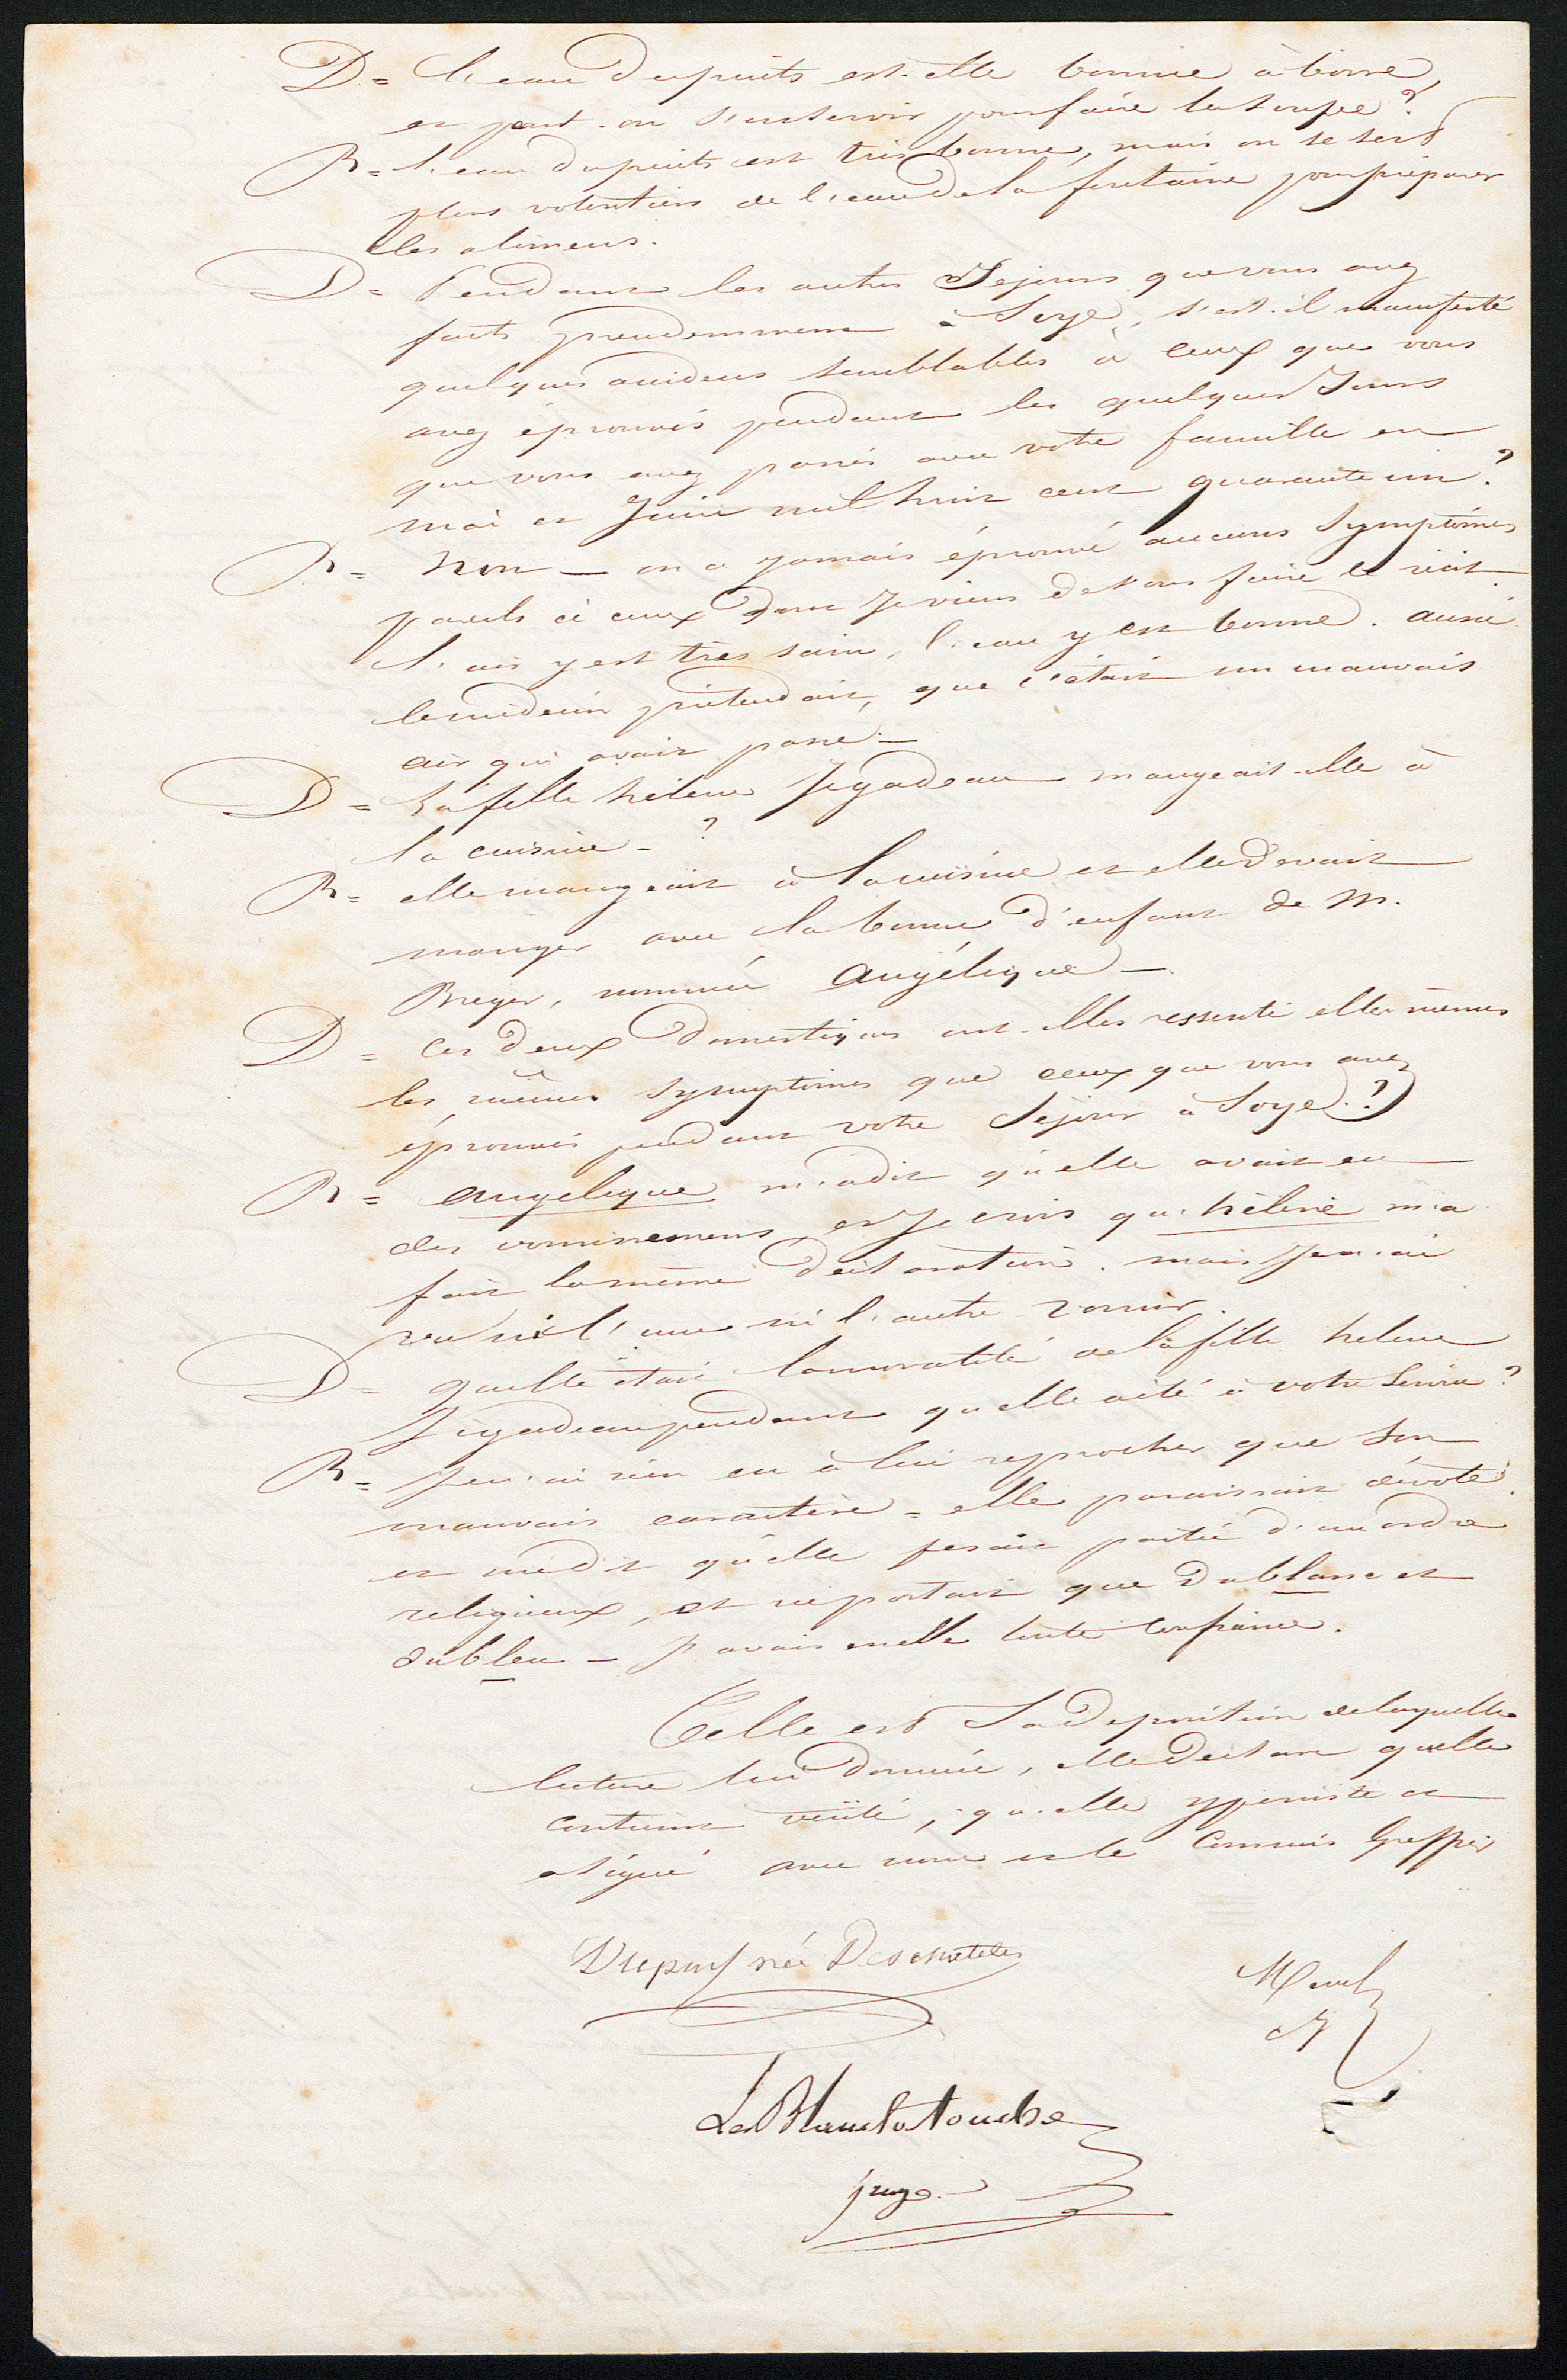 D = l'eau du puits est-elle bonne à boire,
et peut-on s'en servir pour faire la soupe ?
R = l'eau du puits est très bonne, mais on se sert
plus volontiers de l'eau de la fontaine pour préparer
les alimens.
D = Pendant les autres Séjours que vous avez
faits précédemment à Soye, s'est-il manifesté
quelques accidens semblables à ceux que vous
avez éprouvés pendant les quelques Jours
que vous avez passés avec votre famille en
mai et Juin mil huit cent quarante un ?
R = Non — on a jamais éprouvé aucuns Symptômes
pareils à ceux dont Je viens de vous faire le récit
l'air y est très sain, l'eau y est bonne. aussi
le médecin prétendait, que c'était un mauvais
air qui avait passé —
D = La fille hélène Jégadeau mangeait-elle à
la cuisine - ?
R = elle mangeait à la cuisine et elle devait
manger avec la bonne d'enfant de M.
Breger, nommée Angélique —
D = Ces deux Domestiques ont-elles ressenti elles mêmes
les mêmes Symptômes que ceux que vous avez
éprouvés pendant votre Séjour à Soye ?
R = Angelique m'a dit qu'elle avait eu
des vomissemens, et Je crois qu'hélène m'a
fait la même déclaration. mais Je n'ai
vu ni l'une ni l'autre vomir.
D = quelle était la moralité de la fille helene
Jégadeau pendant qu'elle a été à votre Service ?
R = Je n'ai rien eu à lui reprocher que Son
mauvais caractère = elle paraissait dévote
et me dit qu'elle fesait partie d'un ordre
religieux, et ne portait que du blanc et
du bleu — J'avais en elle toute confiance.
Telle est Sa Déposition de laquelle
lecture lui donnée, elle déclare qu'elle
contient vérité, qu'elle y persiste et
a Signé avec nous et le Commis Greffier
Dupuy née Deschatelets
Le Blanc la touche
juge